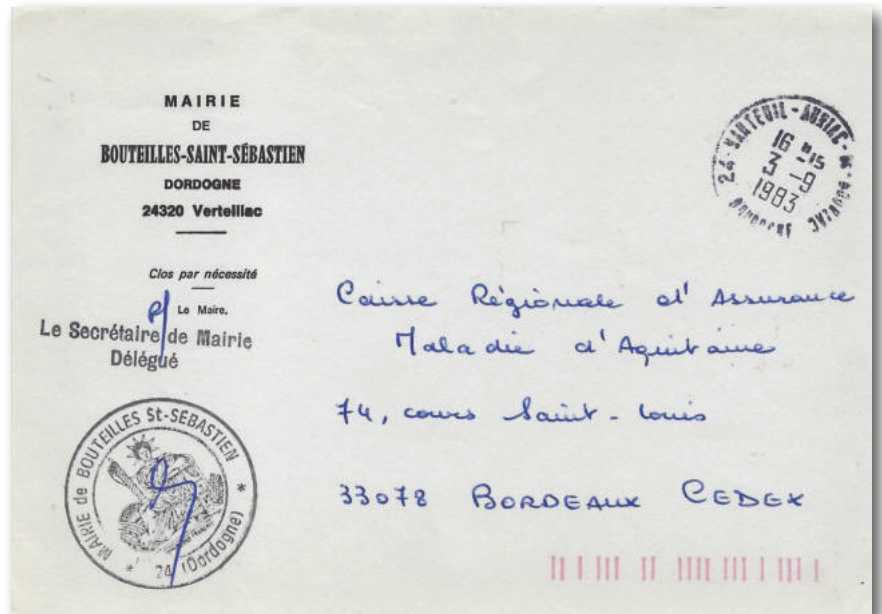 MAIRIE
DE
BOUTEILLES-SAINT-SÉBASTIEN
DORDOGNE
24320 Verteillac
Clos par nécessité
P/ Le Maire,
Le Secrétaire de Mairie
Délégué
MAIRIE de BOUTEILLES St-SÉBASTIEN
* 24 (Dordogne) *
24 - NANTEUIL - AURIAC - DE BOURZAC
16 H 15
3 - 9
1983
DORDOGNE
Caisse Régionale d'Assurance
Maladie d'Aquitaine
74, cours Saint-Louis
33078 BORDEAUX CEDEX